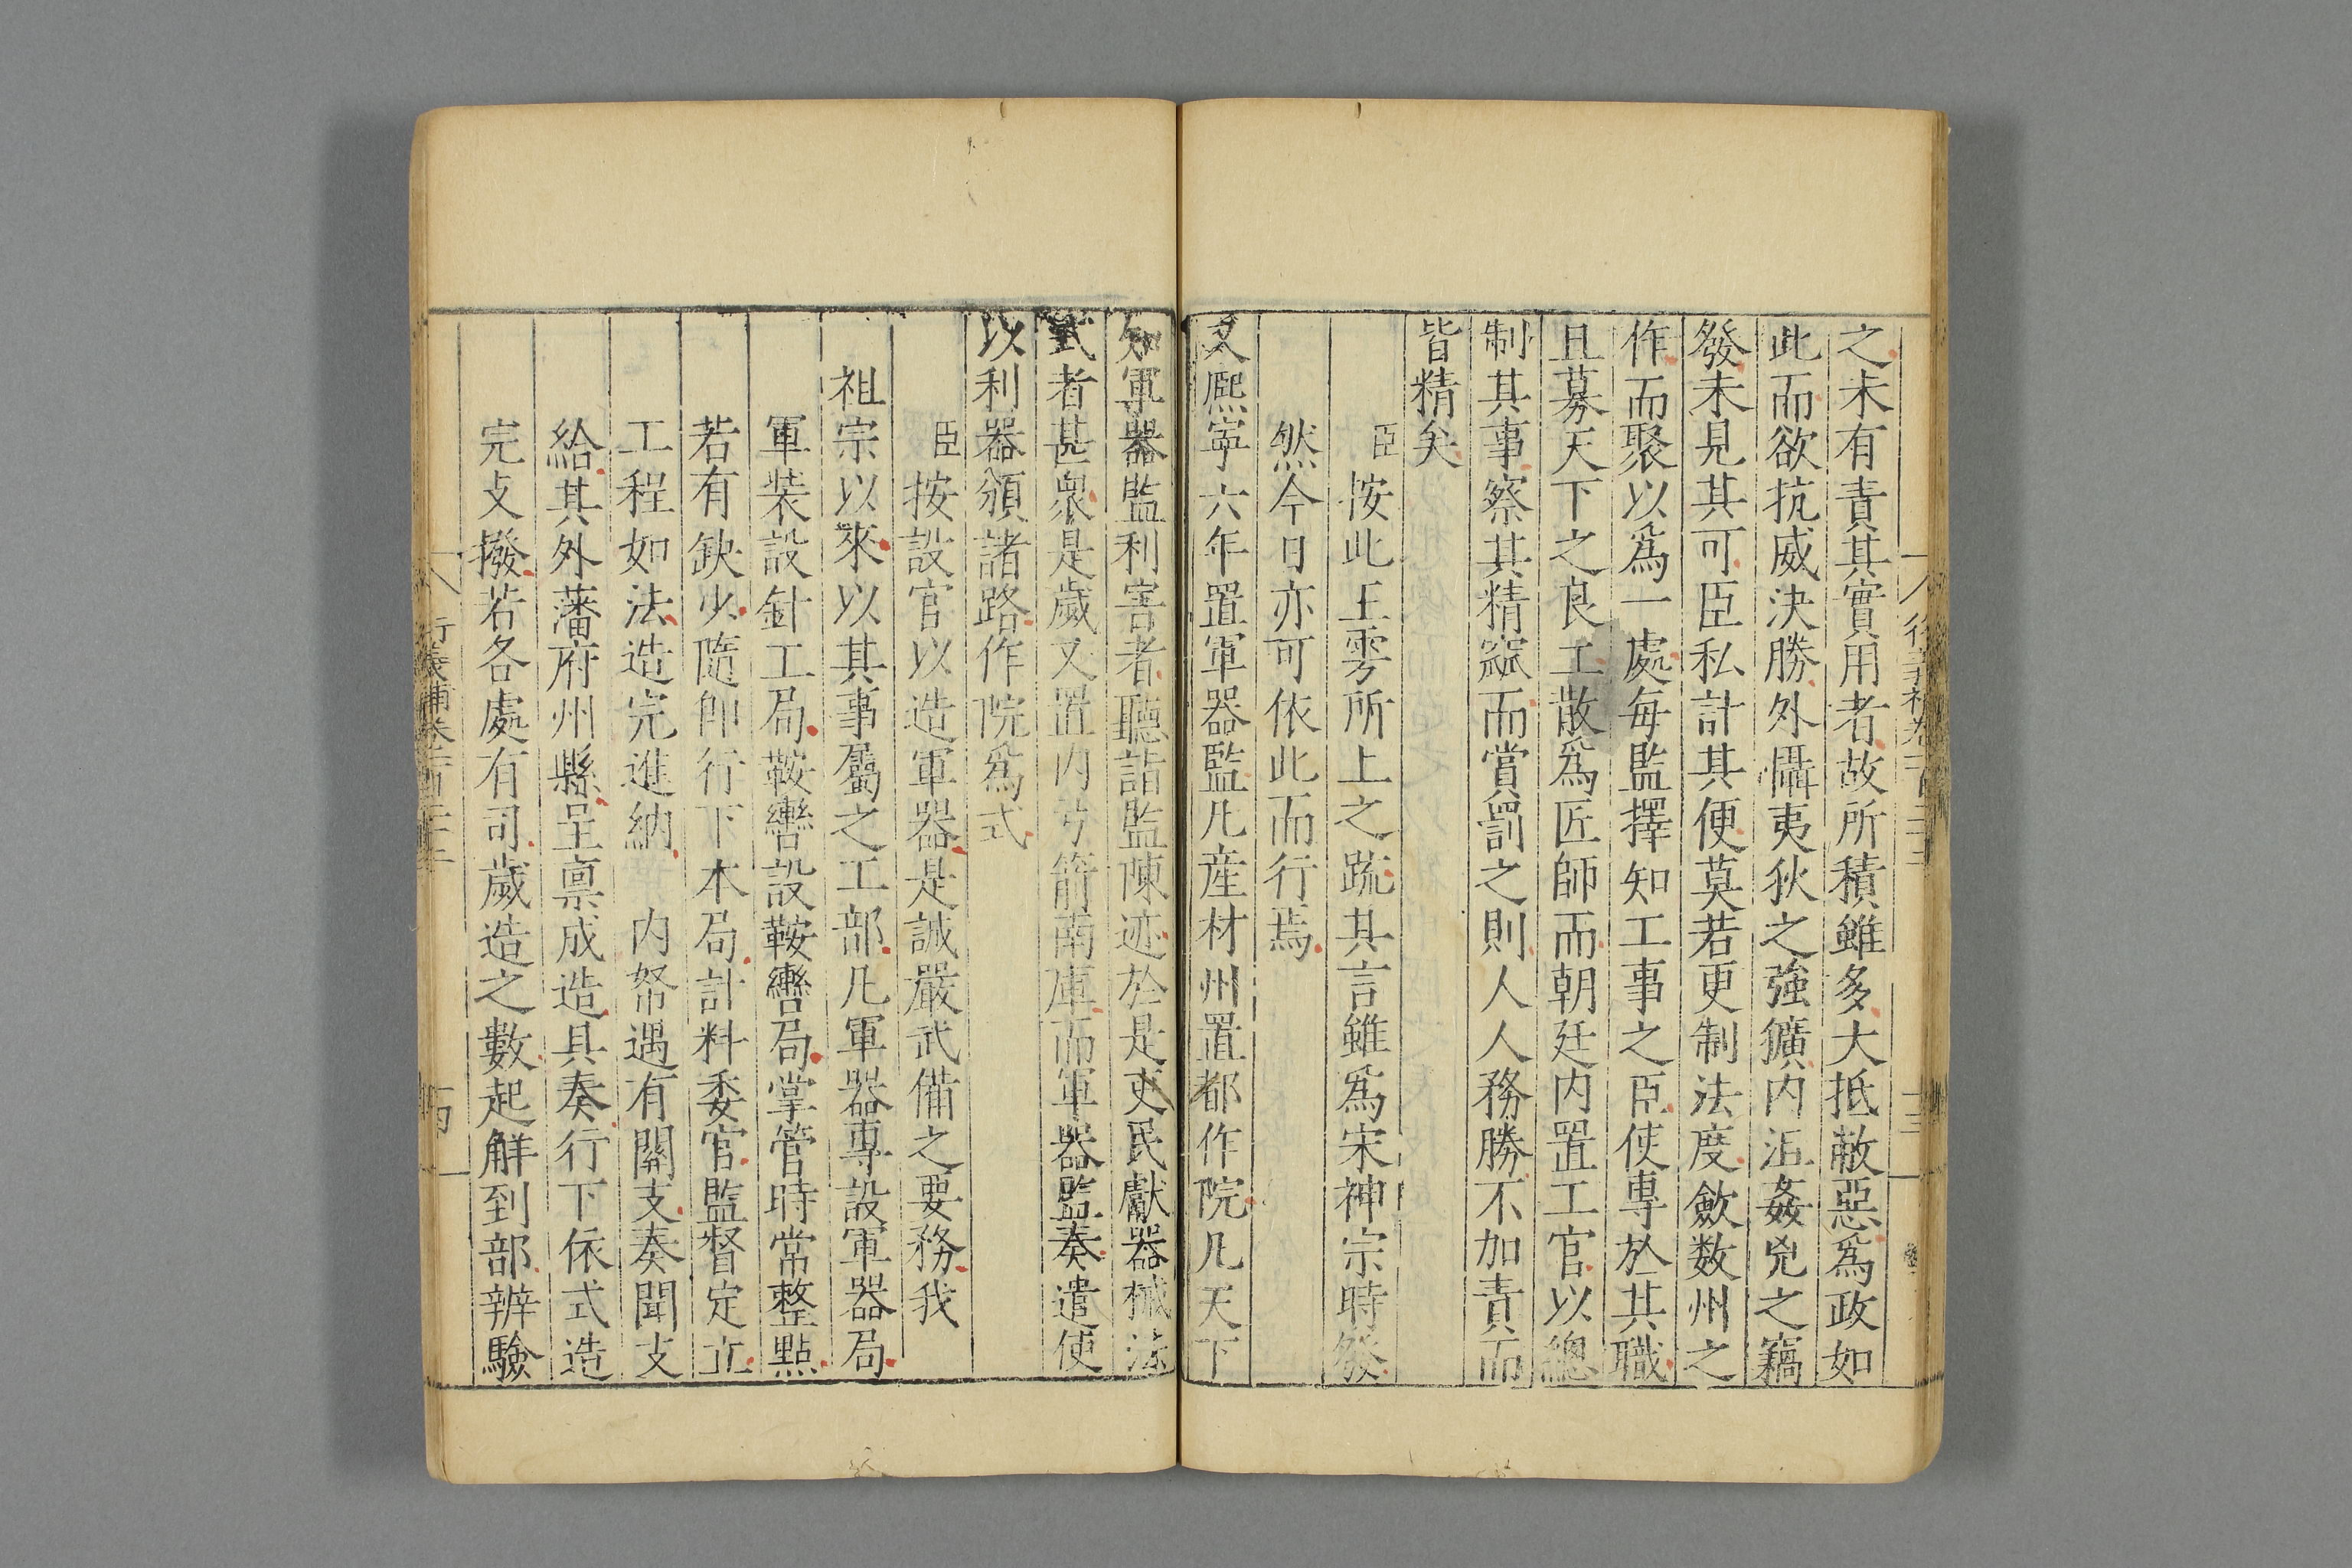 之未有責其實用者故所積雖多大抵敝惡爲政如
此而欲抗威決勝外懾夷狄之強獷内沮姦兇之竊
發未見其可臣私計其便莫若更制法度歛数州之
作而聚以爲一處每監擇知工事之臣使專於其職
且募天下之良工散爲匠師而朝廷内置工官以總
制其事察其精窳而賞罰之則人人務勝不加責而
皆精矣
臣按此王雱所上之疏其言雖爲宋神宗時發
然今日亦可依此而行焉
又熈寧六年置軍器監凡産材州置都作院凡天下
知軍器監利害者聽詣監陳迹於是吏民獻器械法
式者甚衆是歲又置内弓箭南庫而軍器監奏遣使
以利器頒諸路作院爲式
臣按設官以造軍器是誠嚴武備之要務我
祖宗以來以其事屬之工部凡軍器專設軍器局
軍裝設針工局鞍轡設鞍轡局掌管時常整點
若有缺少隨即行下本局計料委官監督定立
工程如法造完進納 内帑遇有關支奏聞支
給其外藩府州縣呈禀成造具奏行下依式造
完攴撥若各處有司歲造之數起觧到部辨驗